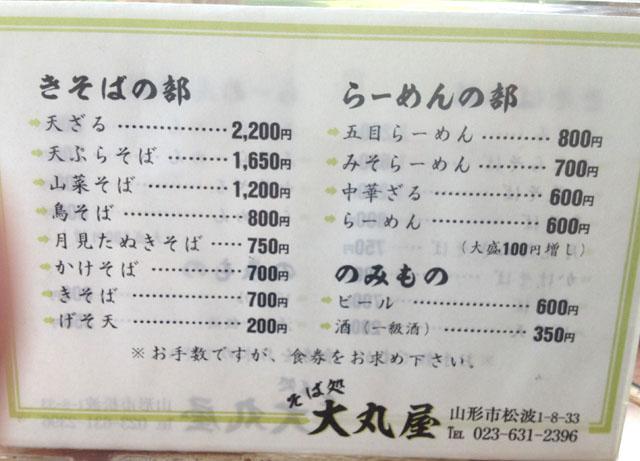 きそばの部
天ざる ……………… 2,200円
天ぷらそば ………… 1,650円
山菜そば …………… 1,200円
鳥そば ……………… 800円
月見たぬきそば …… 750円
かけそば …………… 700円
きそば ……………… 700円
げそ天 ……………… 200円
らーめんの部
五目らーめん ……… 800円
みそらーめん ……… 700円
中華ざる …………… 600円
らーめん …………… 600円
(大盛100円増し)
のみもの
ビール ……………… 600円
酒(一級酒) ………… 350円
※お手数ですが、食券をお求め下さい。
そば処
大丸屋
山形市松波1-8-33
TEL 023-631-2396